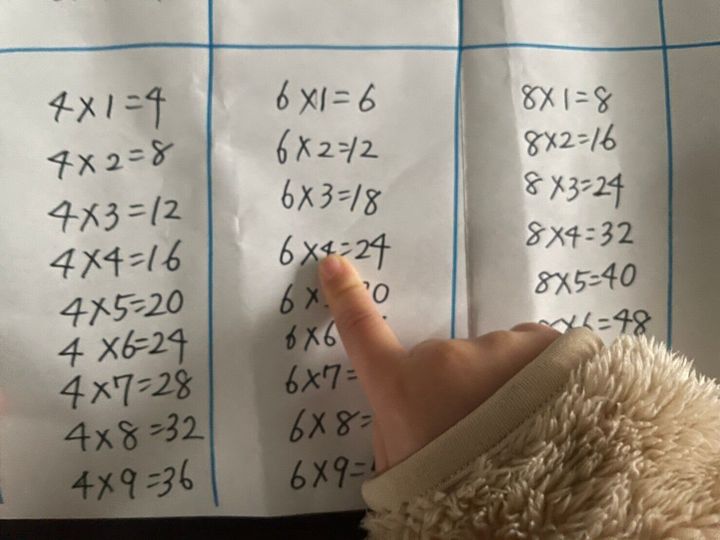 4×1=4
4×2=8
4×3=12
4×4=16
4×5=20
4×6=24
4×7=28
4×8=32
4×9=36
6×1=6
6×2=12
6×3=18
6×4=24
6×
6×6
6×7=
6×8=
6×9=
8×1=8
8×2=16
8×3=24
8×4=32
8×5=40
8×6=48